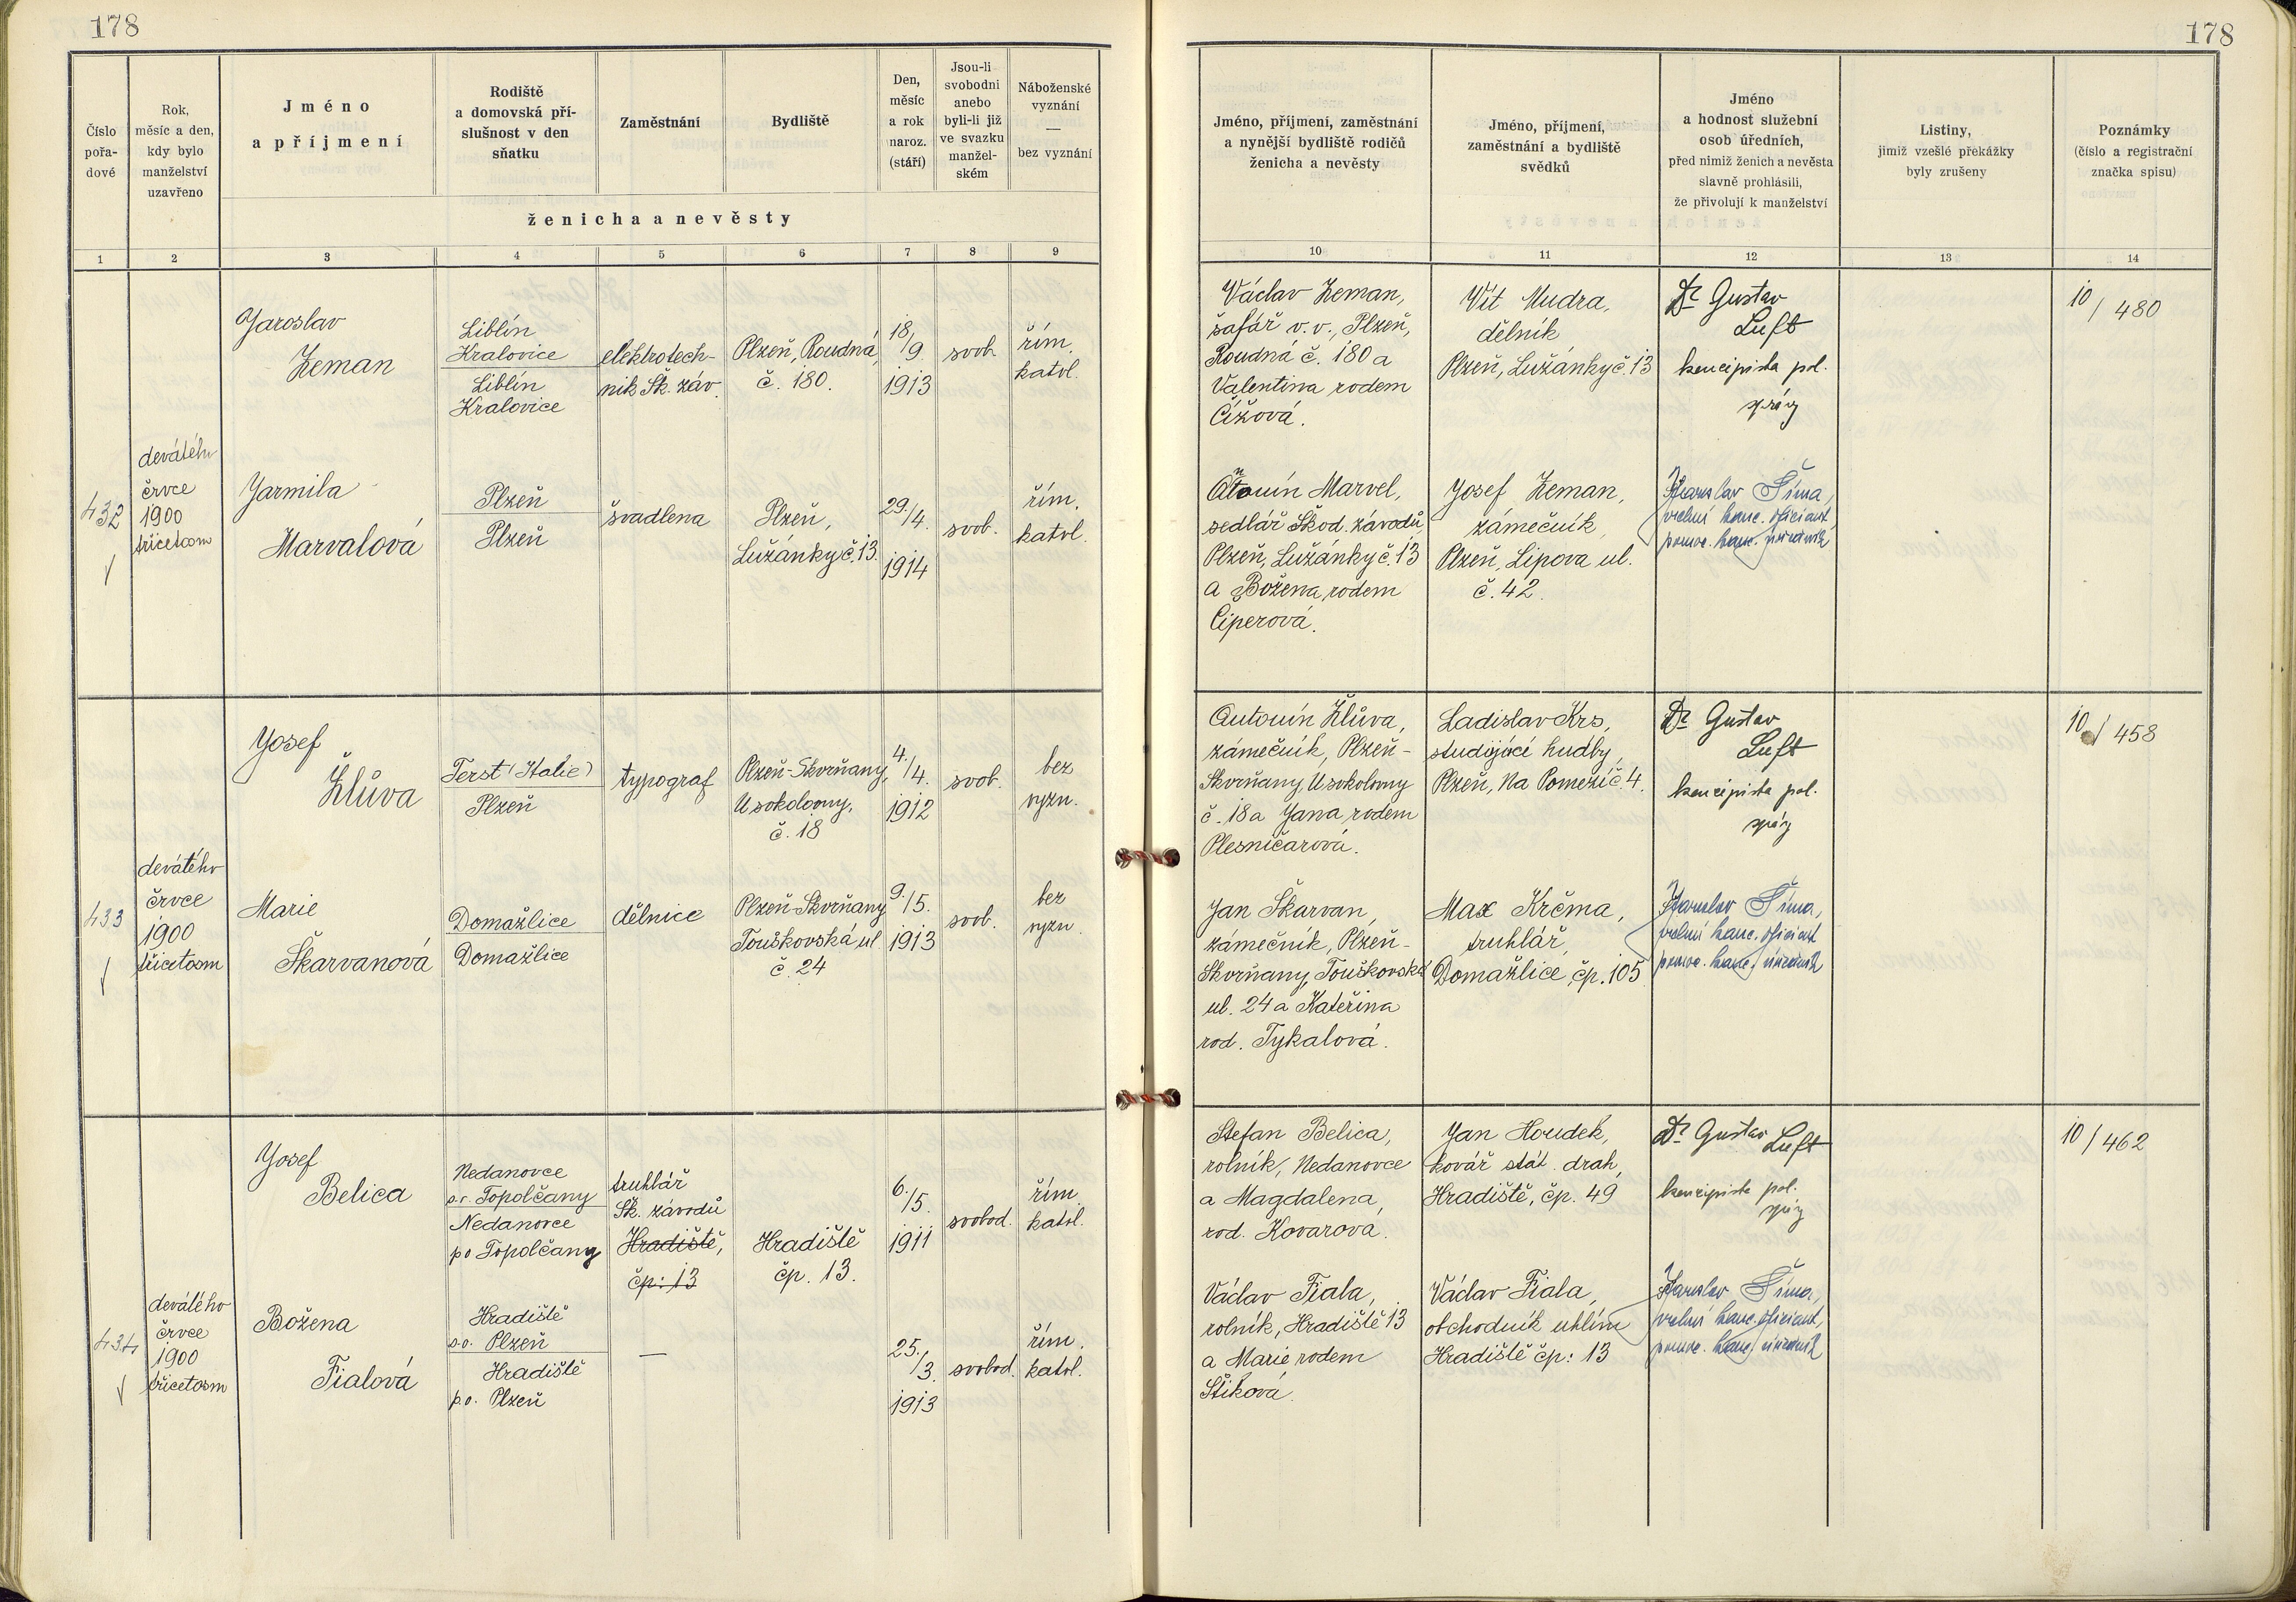 178
178
Číslo
pořa-
dové
Rok,
měsíc a den,
kdy bylo
manželství
uzavřeno
Jméno
a příjmení
Rodiště
a domovská pří-
slušnost v den
sňatku
Zaměstnání
Bydliště
Den,
měsíc
a rok
naroz.
(stáří)
Jsou-li
svobodni
anebo
byli-li již
ve svazku
manžel-
ském
Náboženské
vyznání
—
bez vyznání
ženicha a nevěsty
Jméno, příjmení, zaměstnání
a nynější bydliště rodičů
ženicha a nevěsty
Jméno, příjmení,
zaměstnání a bydliště
svědků
Jméno
a hodnost služební
osob úředních,
před nimiž ženich a nevěsta
slavně prohlásili,
že přivolují k manželství
Listiny,
jimiž vzešlé překážky
byly zrušeny
Poznámky
(číslo a registrační
značka spisu)
1 2 3 4 5 6 7 8 9 10 11 12 13 14
432
devátého
črvce
1900
třicetosm
Jaroslav
Zeman
Liblín
Kralovice
Liblín
Kralovice
elektrotech-
nik Šk. záv.
Plzeň, Roudná,
č. 180.
18./
9.
1913
svob.
řím.
katol.
Václav Zeman,
šafář v. v., Plzeň,
Roudná č. 180 a
Valentina rodem
Čížová.
Vít Mudra,
dělník
Plzeň, Lužánky č. 13
Dr Gustav
Luft
koncipista pol.
správy
10/480
Jarmila
Marvalová
Plzeň
Plzeň
švadlena
Plzeň,
Lužánky č. 13.
29./
4.
1914
svob.
řím.
katol.
Marvel,
sedlář Škod. závodů,
Plzeň, Lužánky č. 13
a Božena, rodem
Ciperová.
Josef Zeman,
zámečník,
Plzeň, Lipova ul.
č. 42.
Jaroslav Šíma,
vrchní kanc. oficiant,
pomoc. kanc. úředník
433
devátého
črvce
1900
třicetosm
Josef
Žlůva
Terst (Italie)
Plzeň
typograf
Plzeň-Skvrňany,
U sokolovny,
č. 18
4./
4.
1912
svob.
bez
vyzn.
Antonín Žlůva,
zámečník, Plzeň-
Skvrňany, U sokolovny
č. 18 a Jana rodem
Plesničarová.
Ladislav Krs,
studující hudby,
Plzeň, Na Pomezí č. 4.
Dr Gustav
Luft
koncipista pol.
správy
10/458
Marie
Škarvanová
Domažlice
Domažlice
dělnice
Plzeň-Skvrňany
Touškovská ul.
č. 24
9./5.
1913
svob.
bez
vyzn.
Jan Škarvan,
zámečník, Plzeň-
Skvrňany, Touškovská
ul. 24 a Kateřina
rod. Tykalová.
Max Krčma,
truhlář,
Domažlice, čp. 105
Jaroslav Šíma,
vrchní kanc. oficiant
pomoc. kanc. úředník
434
devátého
črvce
1900
třicetosm
Josef
Belica
Nedanovce
s.o. Topolčany
Nedanovce
p.o Topolčany
truhlář
Šk. závodů
Hradiště,
čp: 13
Hradiště
čp. 13.
6./
5.
1911
svobod.
řím.
katol.
Štefan Belica,
rolník, Nedanovce
a Magdalena,
rod. Kovarova.
Jan Houdek,
kovář stát. drah,
Hradiště, čp. 49
Dr Gustav Luft
koncipista pol.
správy
10/462
Božena
Fialová
Hradiště
s.o. Plzeň
Hradiště
p.o. Plzeň
—
25./
3.
1913
svobod.
řím.
katol.
Václav Fiala,
rolník, Hradiště 13
a Marie rodem
Šiková.
Václav Fiala,
obchodník uhlím
Hradiště čp: 13
Jaroslav Šíma,
vrchní kanc. oficiant,
pomoc. kanc. úředník